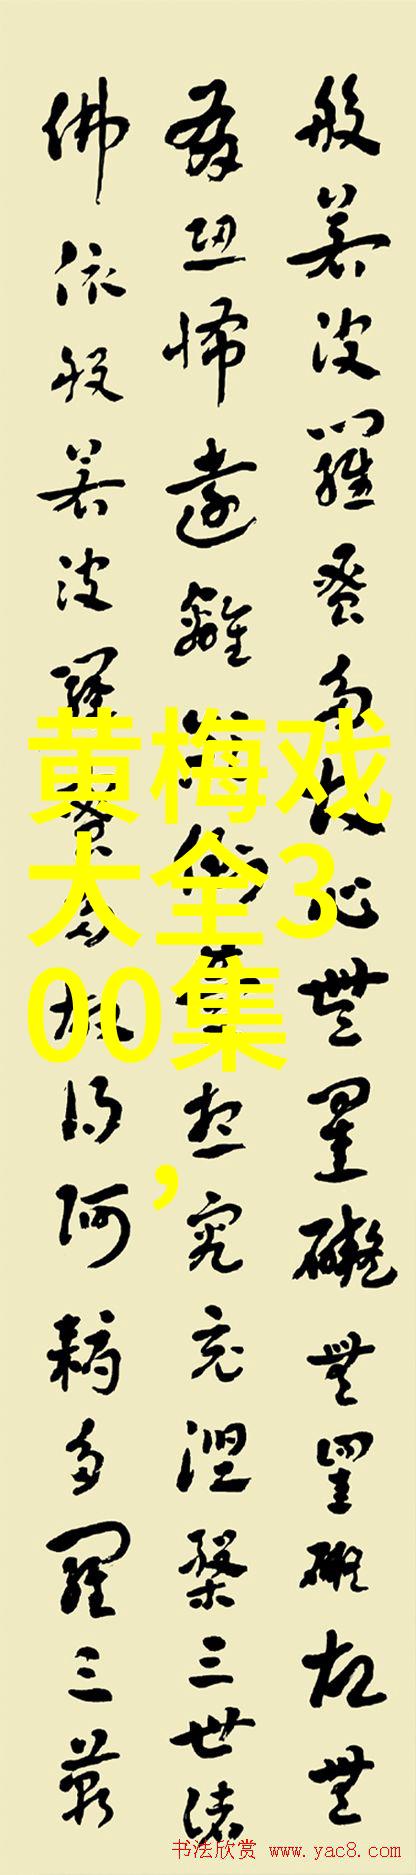 般若波羅蜜多故心無罣礙無罣礙故無
有恐怖遠離一切顛倒夢想究竟涅槃三世諸
佛依般若波羅蜜多故得阿耨多羅三藐
黄梅戏
大全3
00集
,
书法欣赏 www.yac8.com